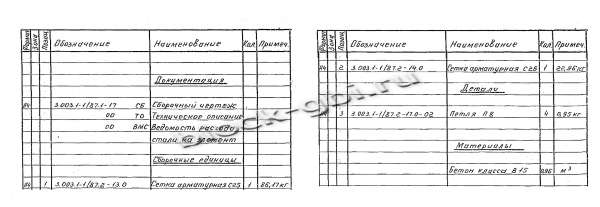 Формат Зона Позиц. Обозначение Наименование Кол. Примеч.
Документация
А4 3.003.1-1/87.1-17 СБ Сборочный чертеж
00 ТО Техническое описание
00 ВМС Ведомость расхода
стали на элемент
Сборочные единицы
А4 1 3.003.1-1/87.2-13.0 Сетка арматурная С25 1 26,17кг
Формат Зона Позиц. Обозначение Наименование Кол. Примеч.
А4 2 3.003.1-1/87.2-14.0 Сетка арматурная С26 1 20,56кг
Детали
А4 3 3.003.1-1/87.2-17.0-02 Петля П8 4 0,95кг
Материалы
Бетон класса В15 0,96 м³
block-gbi.ru